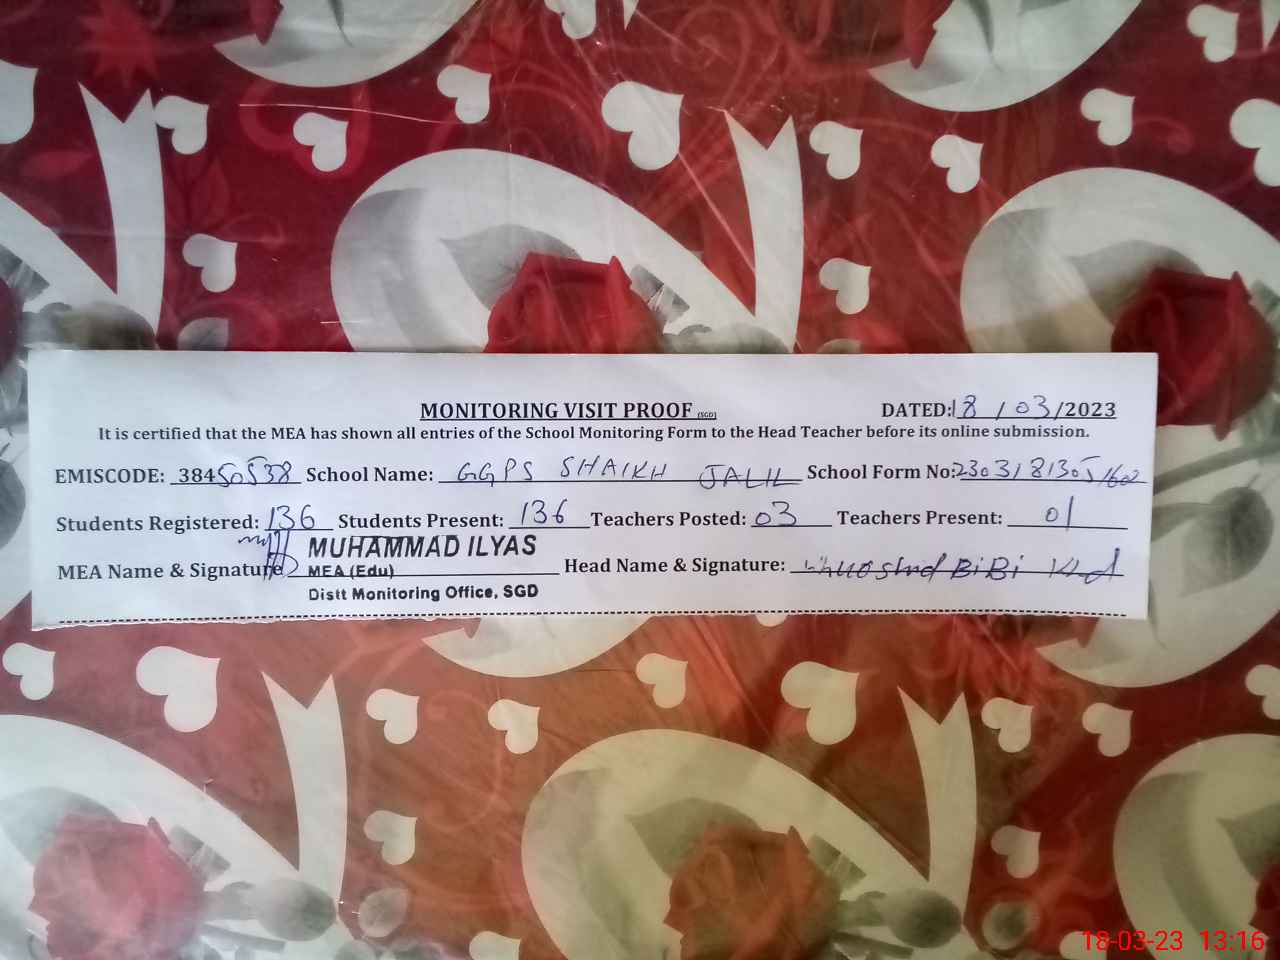 MONITORING VISIT PROOF (SGD) DATED: 18 / 03 /2023
It is certified that the MEA has shown all entries of the School Monitoring Form to the Head Teacher before its online submission.
EMISCODE: 38450538 School Name: GGPS SHAIKH JALIL School Form No: 23031813051602
Students Registered: 136 Students Present: 136 Teachers Posted: 03 Teachers Present: 01
MUHAMMAD ILYAS
MEA Name & Signature MEA (Edu) Head Name & Signature: BiBi
Distt Monitoring Office, SGD
18-03-23 13:16